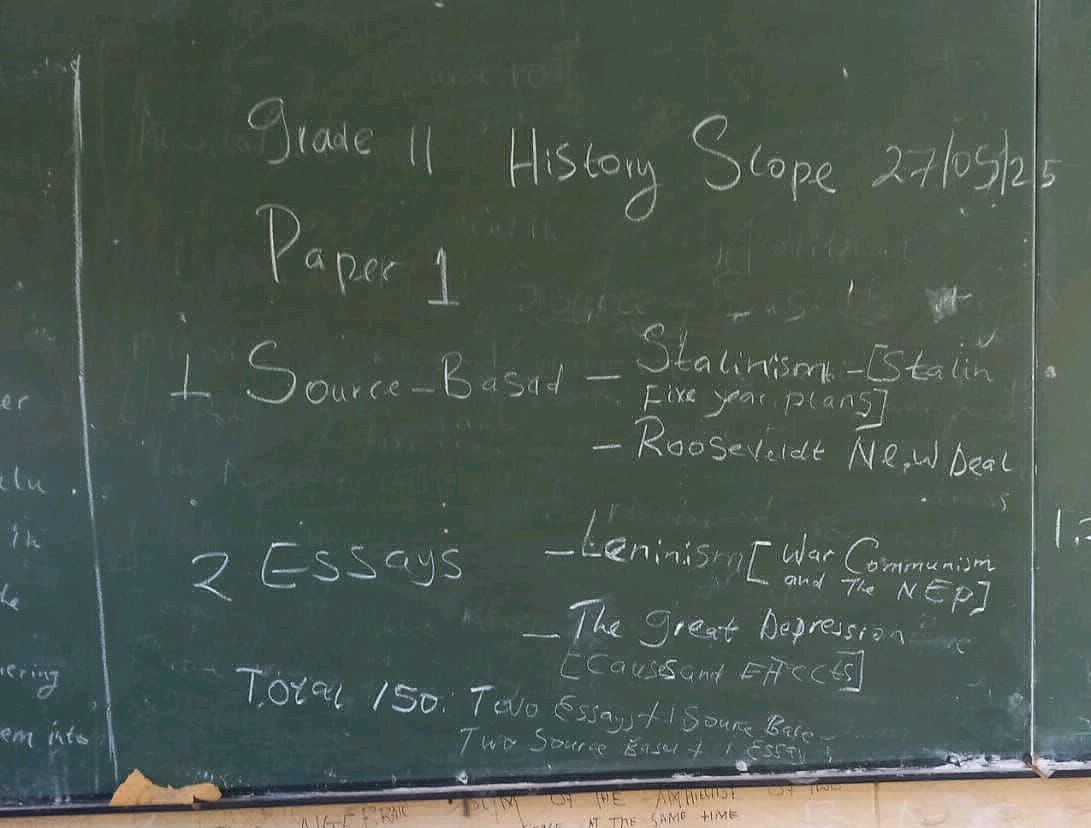 Grade 11 History Scope 27/05/25
Paper 1
1 Source-Based - Stalinism - [Stalin
Five year plans]
- Rooseveldt New Deal
2 Essays - Leninism [War Communism
and The NEP]
- The great Depression
[Causes and Effects]
Total 150: Two Essays + 1 Source Base
Two Source Based + 1 Essay
er
in
ering
em into
ALGEBRAIC
OF THE
AT THE SAME TIME